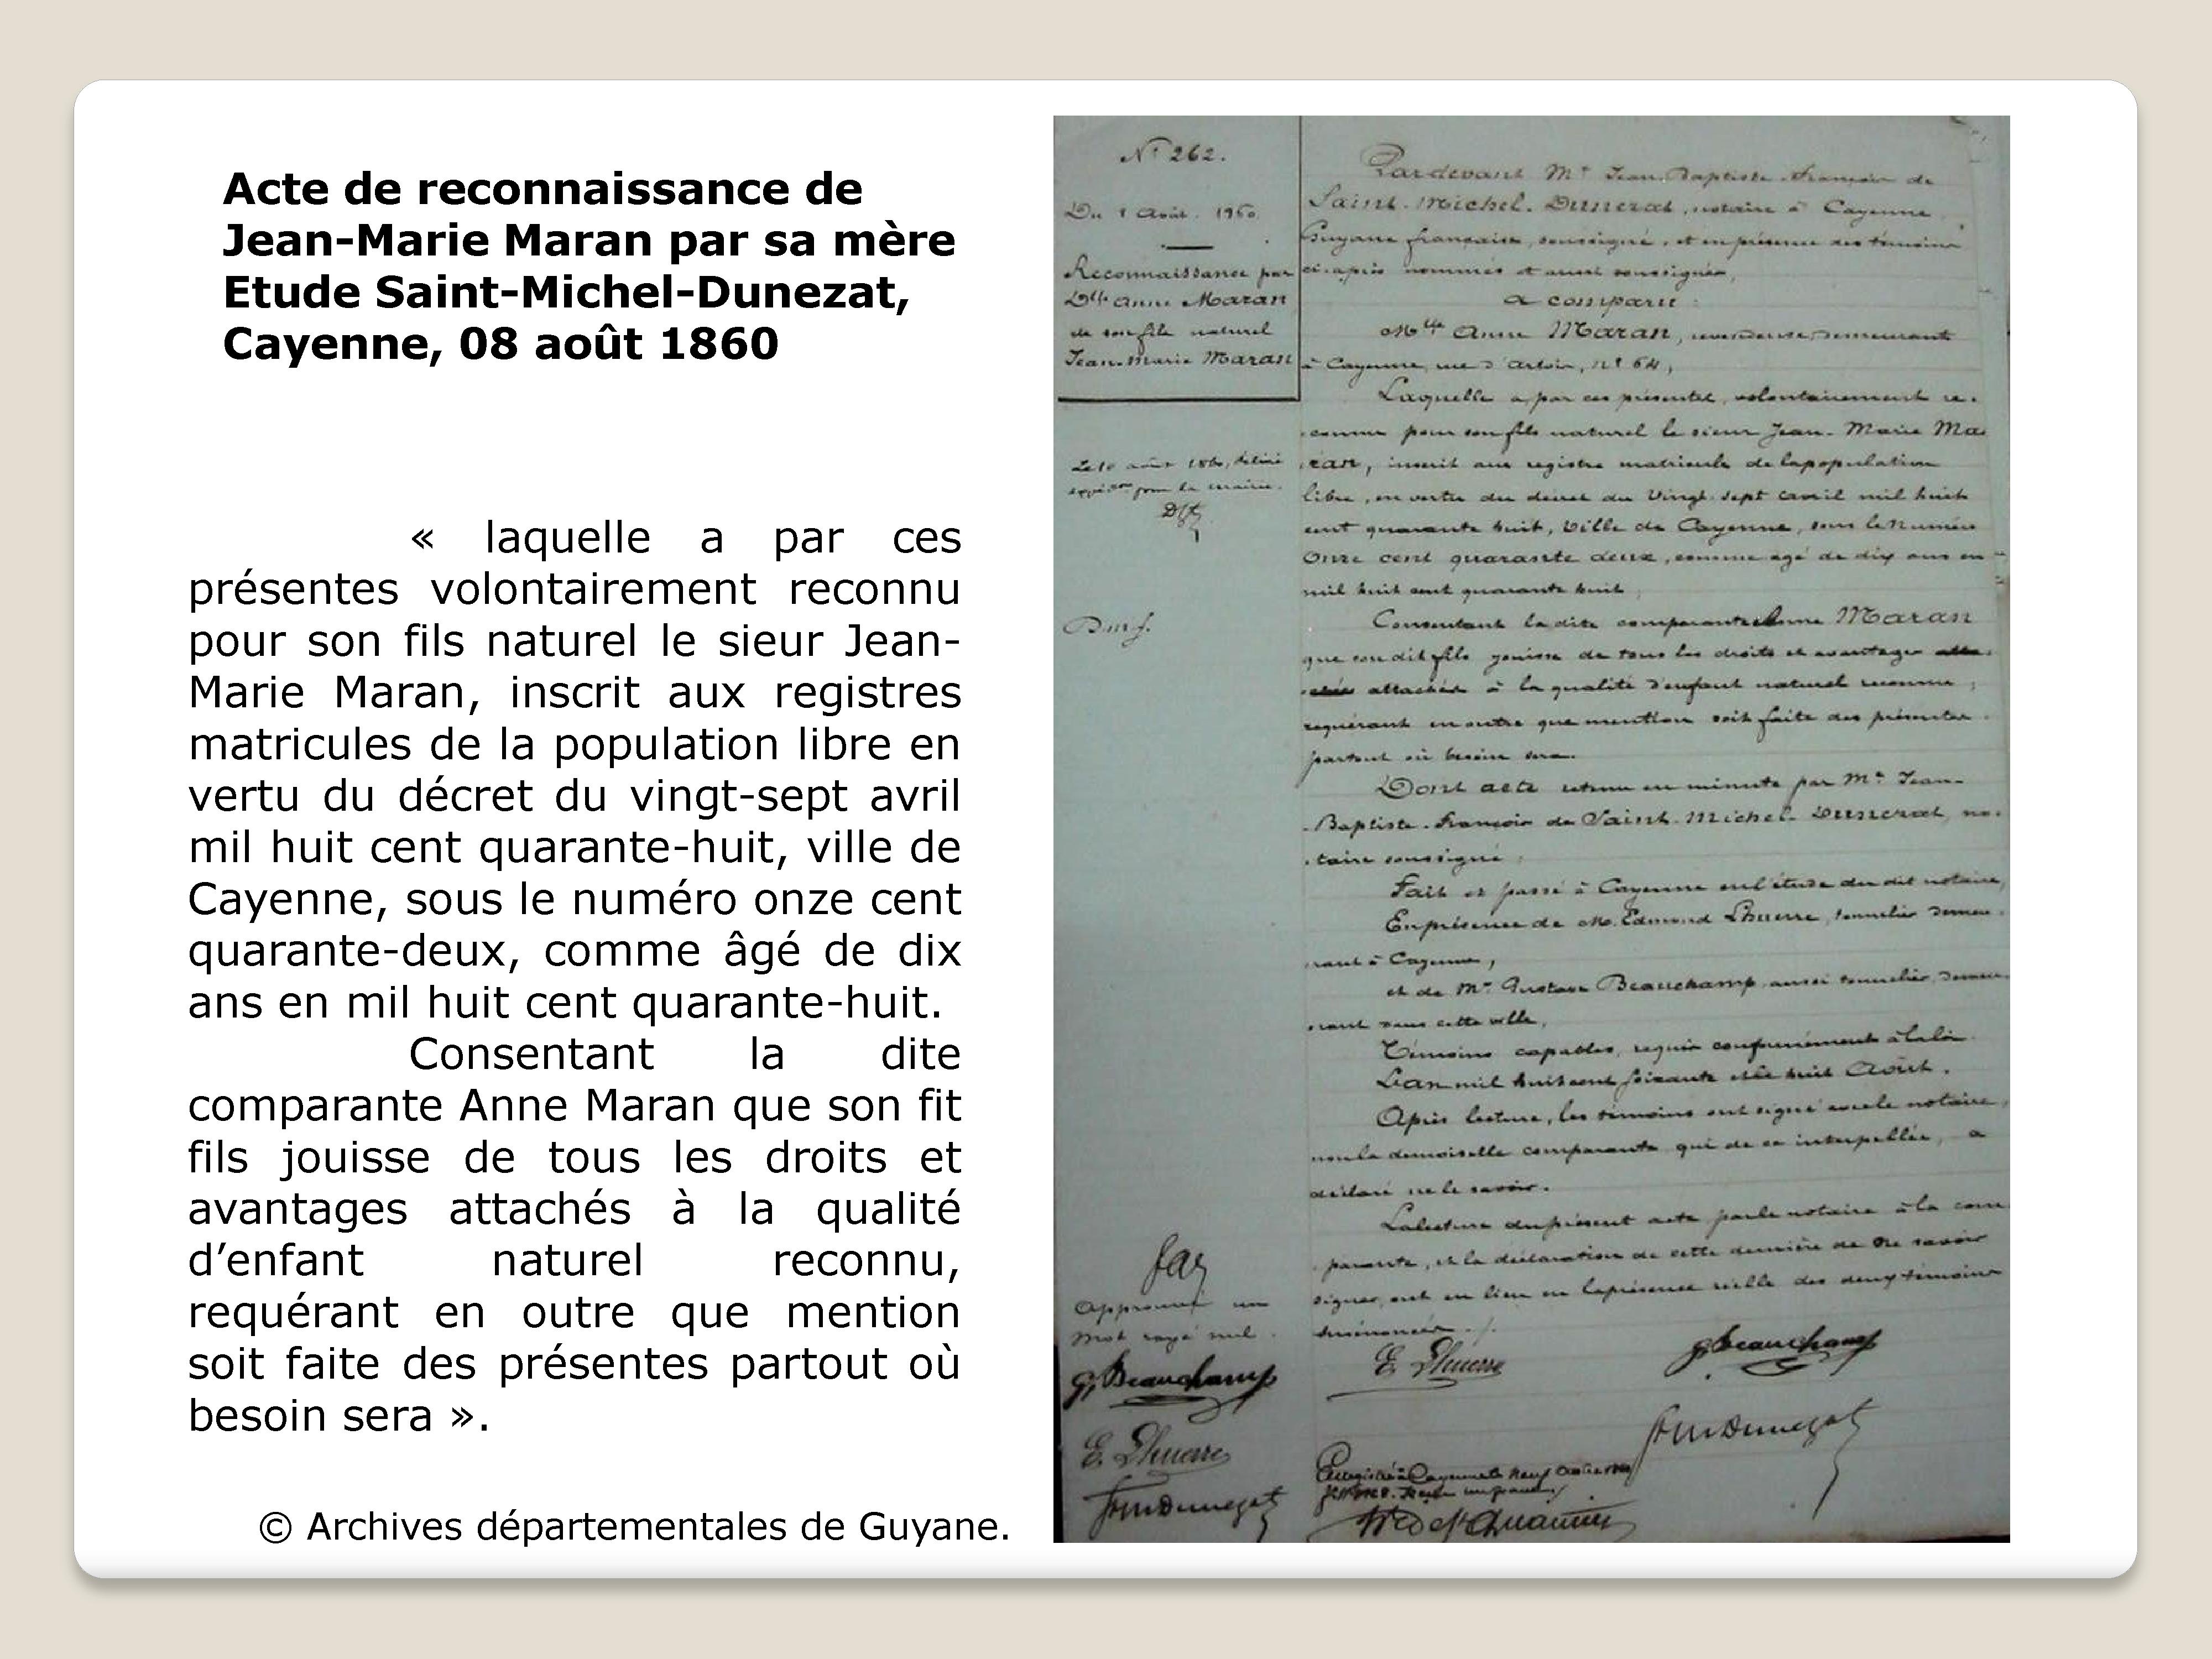 Acte de reconnaissance de
Jean-Marie Maran par sa mère
Etude Saint-Michel-Dunezat,
Cayenne, 08 août 1860
« laquelle a par ces
présentes volontairement reconnu
pour son fils naturel le sieur Jean-
Marie Maran, inscrit aux registres
matricules de la population libre en
vertu du décret du vingt-sept avril
mil huit cent quarante-huit, ville de
Cayenne, sous le numéro onze cent
quarante-deux, comme âgé de dix
ans en mil huit cent quarante-huit.
Consentant la dite
comparante Anne Maran que son fit
fils jouisse de tous les droits et
avantages attachés à la qualité
d’enfant naturel reconnu,
requérant en outre que mention
soit faite des présentes partout où
besoin sera ».
© Archives départementales de Guyane.
N° 262.
Du 8 Août
Reconnaissance par
Dlle Anne Maran
de son fils naturel
Jean-Marie Maran
Pardevant Me Jean-Baptiste-François de
Saint-Michel-Dunezat, notaire à Cayenne
Guyane française, soussigné, et en présence des témoins
ci-après nommés et aussi soussignés,
a comparu :
Mlle Anne Maran, revendeuse, demeurant
à Cayenne, rue d'Artois, n° 64,
Laquelle a par ces présentes, volontairement re-
connu pour son fils naturel le sieur Jean-Marie Ma-
ran, inscrit aux registres matricules de la population
libre, en vertu du décret du vingt-sept avril mil huit
cent quarante huit, ville de Cayenne, sous le numéro
onze cent quarante deux, comme agé de dix ans en
mil huit cent quarante huit,
Consentant la dite comparante Anne Maran
que son dit fils jouisse de tous les droits et avantages
attachés à la qualité d'enfant naturel reconnu,
requérant en outre que mention soit faite des présentes
partout où besoin sera.
Dont acte retenu en minute par Me Jean-
Baptiste-François de Saint-Michel-Dunezat, no-
taire soussigné,
Fait et passé à Cayenne en l'étude du dit notaire,
En présence de M. Edmond Lhuerre, tonnelier demeu-
rant à Cayenne,
et de Mr Gustave Beauchamp, aussi tonnelier, demeu-
rant dans cette ville,
Témoins capables, requis conformément à la loi
L'an mil huit cent soixante et le huit Août.
Après lecture, les témoins ont signé avec le notaire,
non la demoiselle comparante qui de ce interpellée, a
déclaré ne le savoir.
La lecture du présent acte par le notaire à la com-
parante, et la déclaration de cette dernière de ne savoir
signer, ont eu lieu en la présence réelle des deux témoins
susénoncés ./.
Approuvé un
mot rayé nul.
G. Beauchamp
E. Lhuerre
G. Beauchamp
E. Lhuerre